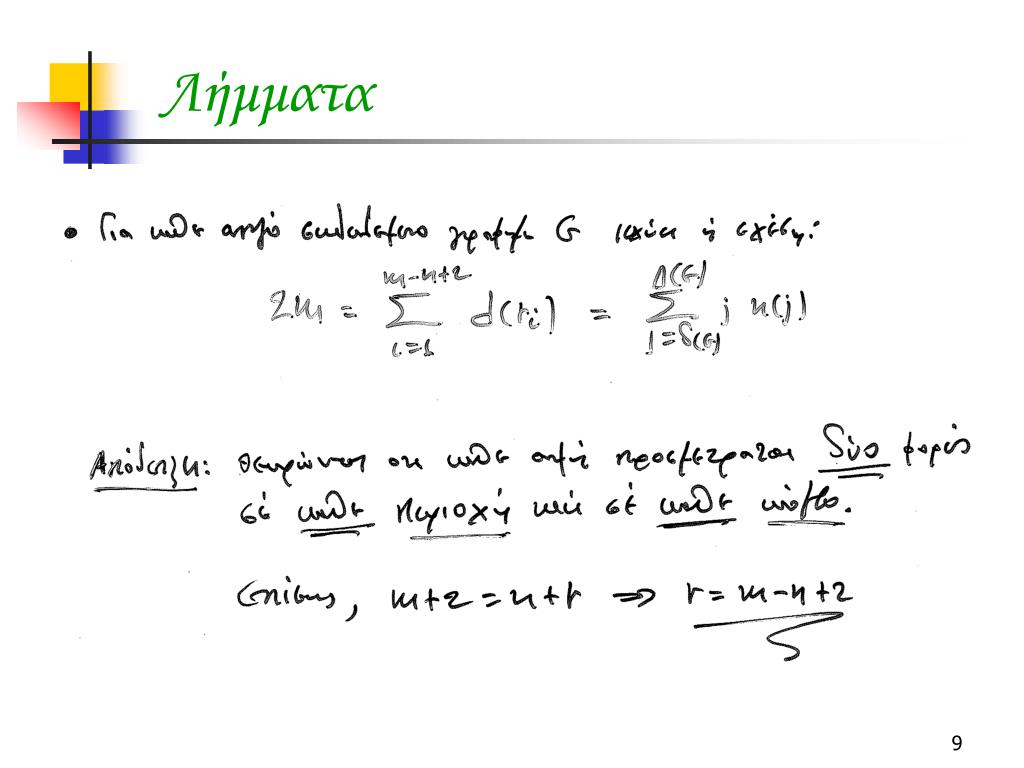 Λήμματα
• Για κάθε απλό επίπεδο γράφημα G ισχύει ή σχέση:
2m = \sum_{i=1}^{m-n+2} d(r_i) = \sum_{j=δ(G)}^{Δ(G)} j n(j)
Απόδειξη: Θεωρώντας ότι κάθε ακμή προσμετράται δύο φορές
σέ κάθε περιοχή καί σέ κάθε κόμβο.
Επίσης, m+2 = n+r ⇒ r = m-n+2
9